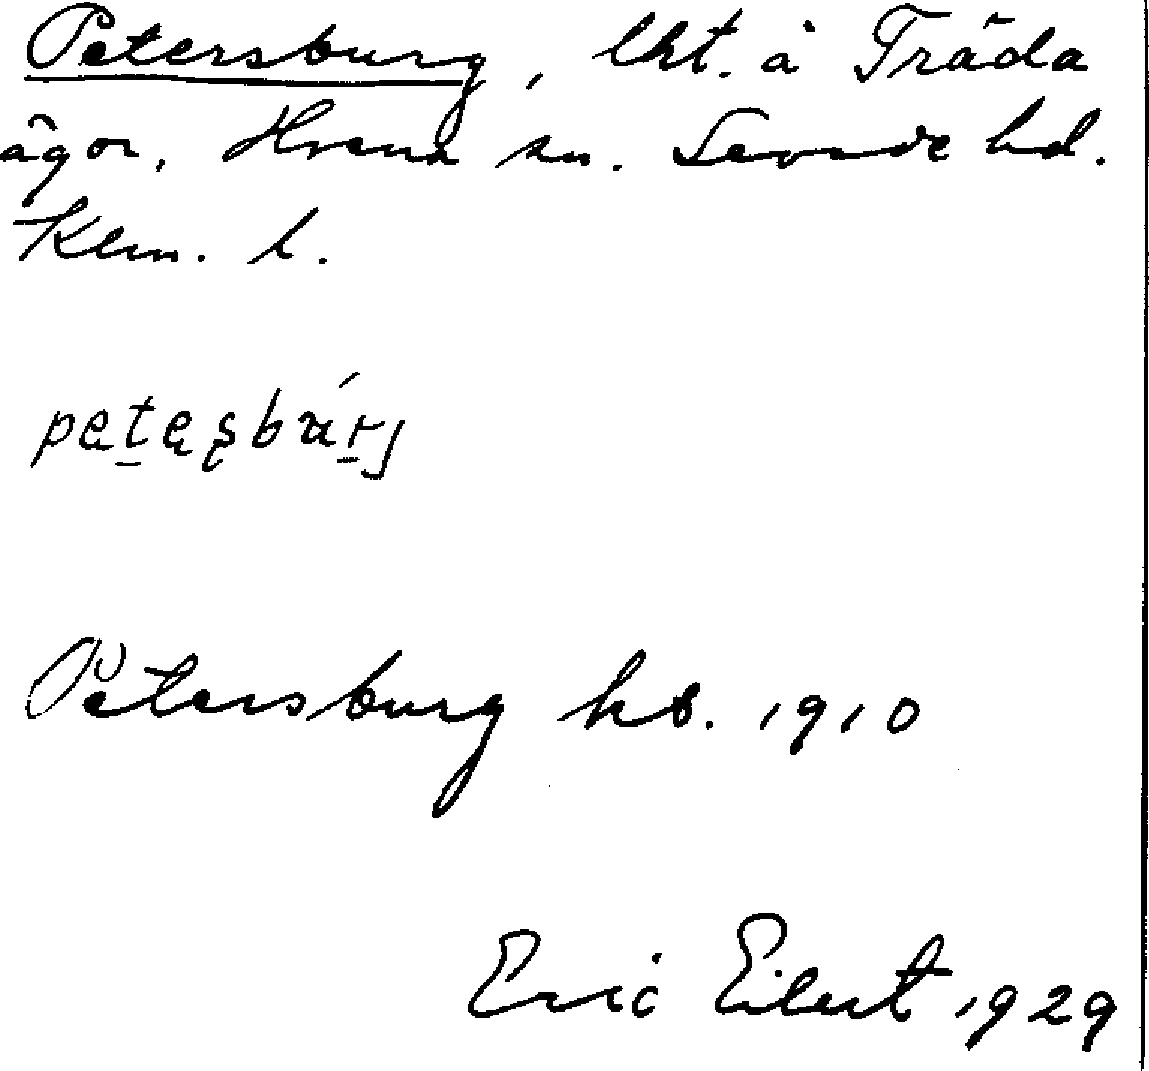 Petersburg, lht. å Träda
ägor, Hvena sn. Sevede hd.
Klm. l.
Petersburg hs. 1910
Eric Eilert 1929